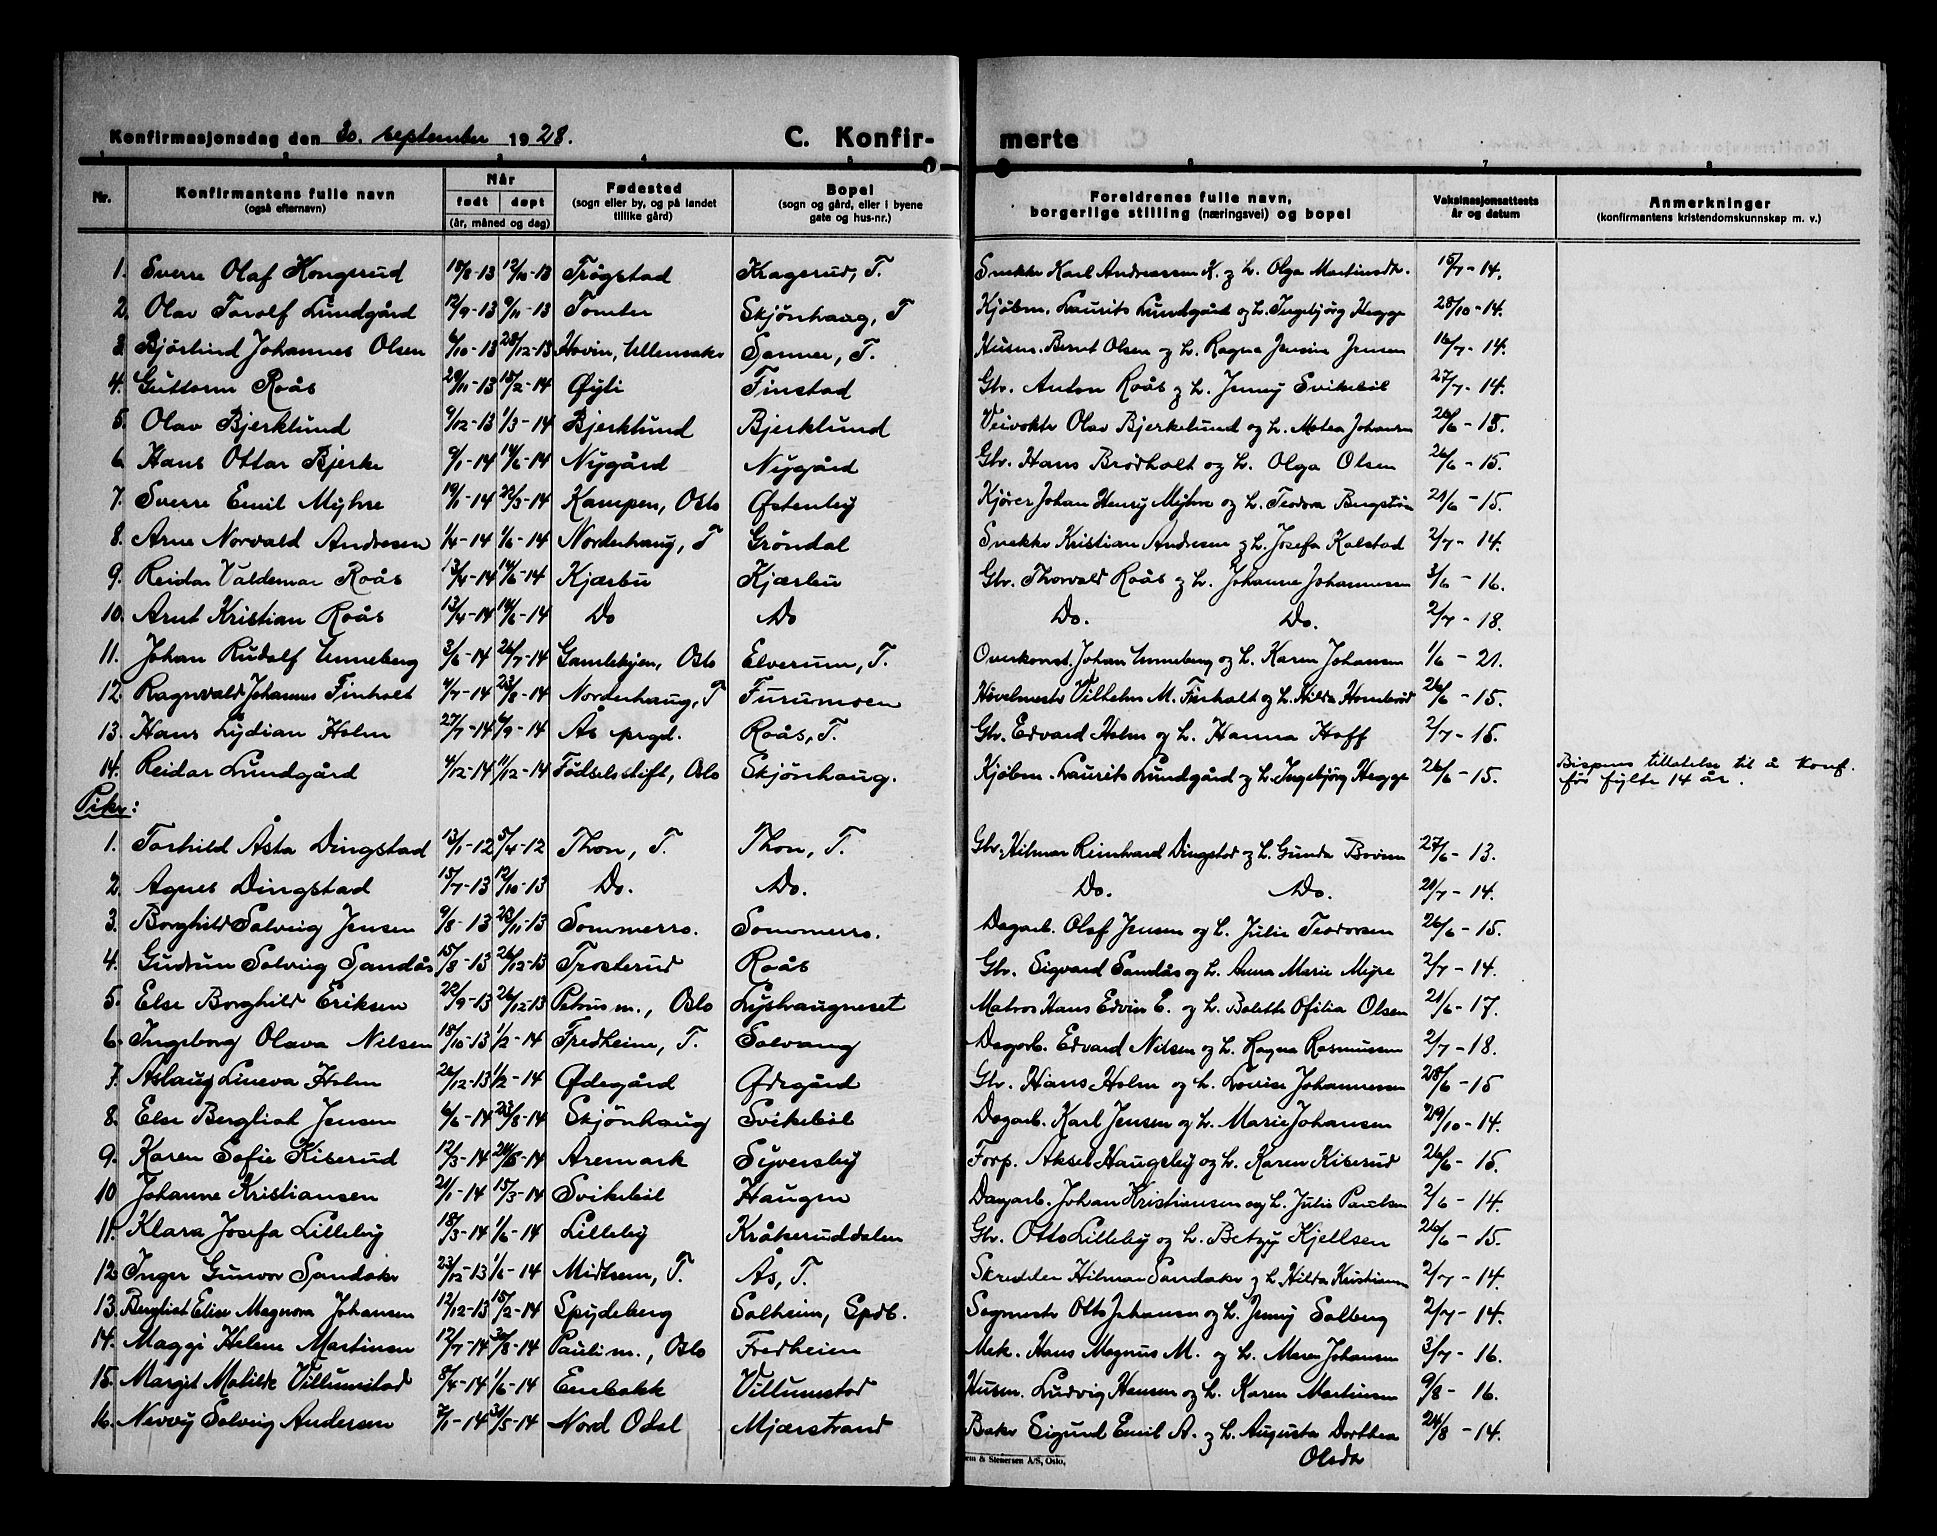 Konfirmasjonsdag den 30. september 1928. C. Konfir-
merte
Nr. Konfirmantens fulle navn (også efternavn) Når født døpt (år, måned og dag) Fødested (sogn eller by, og på landet tillike gård) Bopel (sogn og gård, eller i byene gate og hus-nr.) Foreldrenes fulle navn, borgerlige stilling (næringsvei) og bopel Vaksinasjonsattests år og datum Anmerkninger (konfirmantens kristendomskunnskap m. v.)
1. Sverre Olaf Hongsrud 18/8-13 12/10-13 Trøgstad Kragerud, T. Snekker Karl Andreassen H. og h. Olga Martinsdtr. 15/7-14.
2. Olav Torolf Lundgård 12/9-13 9/11-13 Tomter Skjønhaug, T Kjøbm. Laurits Lundgård og h. Ingebjørg Hegge 28/10-14.
3. Johannes Olsen 6/10-13 28/12-13 Hovin, Ullensaker Sanner, T. Husm. Bernt Olsen og h. Ragna Jensine Jensen 16/7-14.
4. Guttorm Roås 29/11-13 15/2-14 Øyli Finstad Gbr. Anton Roås og h. Jenny Svikebøl 27/7-14.
5. Olav Bjerklund 9/12-13 1/3-14 Bjerklund Bjerklund Veivokter Olav Bjerkelund og h. Matea Johansen 26/6-15.
6. Hans Ottar Bjerke 9/1-14 14/6-14 Nygård Nygård Gbr. Hans Brødholt og h. Olga Olsen 26/6-15.
7. Sverre Emil Myhre 19/1-14 22/3-14 Kampen, Oslo Østenby Kjører Johan Henry Myhre og h. Teodora 21/6-15.
8. Arne Norvald Andresen 1/4-14 1/6-14 Norderhaug, T Grøndal Snekker Kristian Andresen og h. Josefa Kolstad 2/7-14.
9. Reidar Valdemar Roås 13/4-14 14/6-14 Kjærbu Kjærbu Gbr. Thorvald Roås og h. Johanne Johannesen 3/6-16.
10. Arnt Kristian Roås 13/4-14 14/6-14 Do Do Do. Do. 2/7-18.
11. Johan Rudolf Unneberg 3/6-14 26/7-14 Gamlebyen, Oslo Elverum, T. Overkonst. Johan Unneberg og h. Karen Johansen 1/6-21.
12. Ragnvald Johannes Finholt 4/7-14 23/8-14 Norderhaug, T Furumoen Høvelmester Vilhelm M. Finholt og h. Hilda 26/6-15.
13. Hans Lydian Holm 27/7-14 6/9-14 Ås prgd. Roås, T. Gbr. Edvard Holm og h. Hanna Hoff 2/7-15.
14. Reidar Lundgård 4/12-14 11/12-14 Fødselsstift, Oslo Skjønhaug. Kjøbm. Laurits Lundgård og h. Ingebjørg Hegge 26/6-15. Bispens tillatelse til å konf.
før fylte 14 år.
Piker:
1. Torhild Åsta Dingstad 13/1-12 5/4-12 Thon, T. Thon, T. Gbr. Hilmar Reinhard Dingstad og h. Gunda Bovim 27/6-13.
2. Agnes Dingstad 15/7-13 12/10-13 Do. Do. Do. Do. 21/7-14.
3. Borghild Solveig Jensen 9/8-13 23/11-13 Sommerro. Sommerro. Dagarb. Olaf Jensen og h. Julie Teodorsen 26/6-15.
4. Gudrun Solveig Sandås 15/8-13 26/12-13 Trosterud Roås Gbr. Sigvard Sandås og h. Anna Marie Myre 2/7-14.
5. Else Borghild Eriksen 22/9-13 26/12-13 Petrus m., Oslo Lyshaugneset Matros Hans Edvin E. og h. Bolette Ofilia Olsen 21/6-17.
6. Ingeborg Olava Nilsen 18/10-13 1/2-14 Fredheim, T. Solvang Dagarb. Edvard Nilsen og h. Ragna Rasmussen 2/7-18.
7. Aslaug Lineva Holm 26/12-13 1/2-14 Ødegård Ødegård Gbr. Hans Holm og h. Lovise Johannesen 28/6-15
8. Else Bergliot Jensen 6/6-14 23/8-14 Skjønhaug Svikebøl Dagarb. Karl Jensen og h. Marie Johansen 29/10-14.
9. Karen Sofie Kiserud 12/3-14 24/5-14 Aremark Syversby Forp. Aksel Haugsby og h. Karen Kiserud 26/6-15.
10 Johanne Kristiansen 21/1-14 15/3-14 Svikebøl Haugen Dagarb. Johan Kristiansen og h. Julie Paulsen 2/6-14.
11. Klara Josefa Lilleby 18/3-14 1/6-14 Lilleby Kråkeruddalen Gbr. Otto Lilleby og h. Betzy Kjellsen 26/6-15.
12 Inger Gunvor Sandaker 23/12-13 1/6-14 Midtsem, T. Ås, T. Skredder Hilmar Sandaker og h. Hilda Kristiansen 2/7-14.
13. Bergliot Elise Magnora Johansen 12/12-13 15/2-14 Spydeberg Solheim, Spdb. Sagmester Otto Johansen og h. Jenny Solberg 2/7-14.
14. Maggi Helene Martinsen 12/7-14 30/8-14 Pauli m., Oslo Fredheim Mek. Hans Magnus M. og h. Maren Johansen 3/7-16.
15. Margit Matilde Villumstad 8/4-14 1/6-14 Enebakk Villumstad Husm. Ludvig Hansen og h. Karen Martinsen 9/8-16.
16. Solveig Andersen 7/1-14 31/5-14 Nord Odal Mjærstrand Baker Sigurd Emil A. og h. Augusta Dorthea
Olsdtr 24/8-14.
& Stenersen A/S, Oslo.